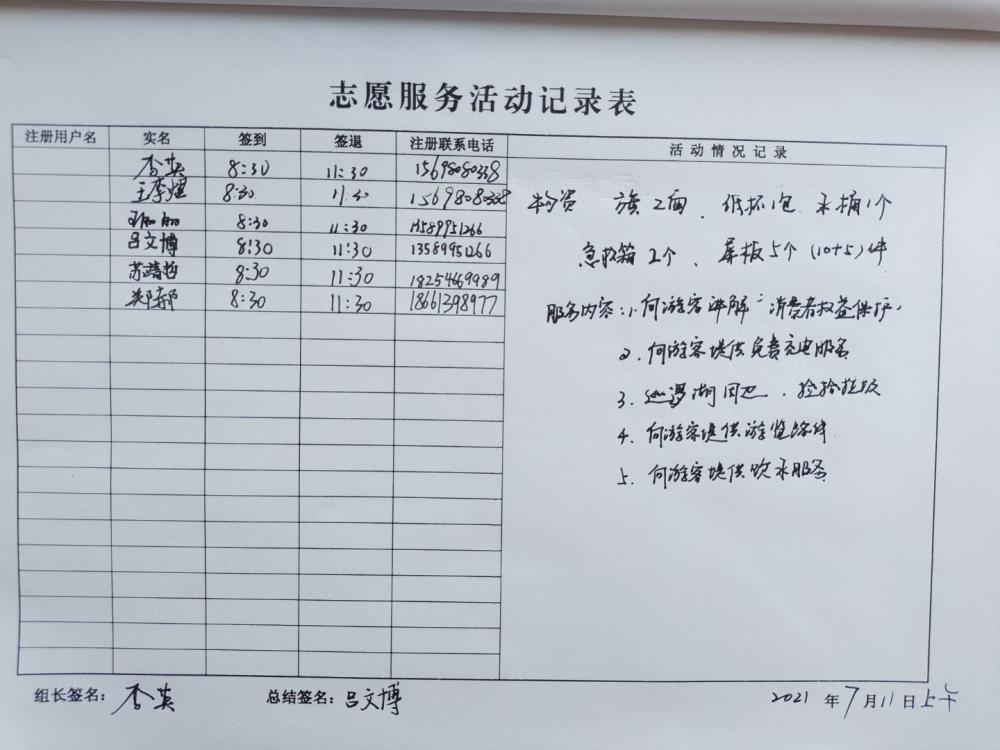 志愿服务活动记录表
注册用户名 实名 签到 签退 注册联系电话 活动情况记录
李英 8:30 11:30 15698080338
8:30 11.30 15698080338
8:30 11:30 13589951266
吕文博 8:30 11:30 13589951266
苏靖哲 8:30 11:30 18254469989
郑郝 8:30 11:30 18661398977
物资 旗2面、纸杯1包 水桶1个
急救箱2个、展板5个(10+5)件
服务内容:1.向游客讲解“消费者权益保护”
2.向游客提供免费充电服务
3.巡逻湖周边、捡拾垃圾
4.向游客提供游览
5.向游客提供饮水服务
组长签名:李英 总结签名:吕文博 2021年7月11日上午